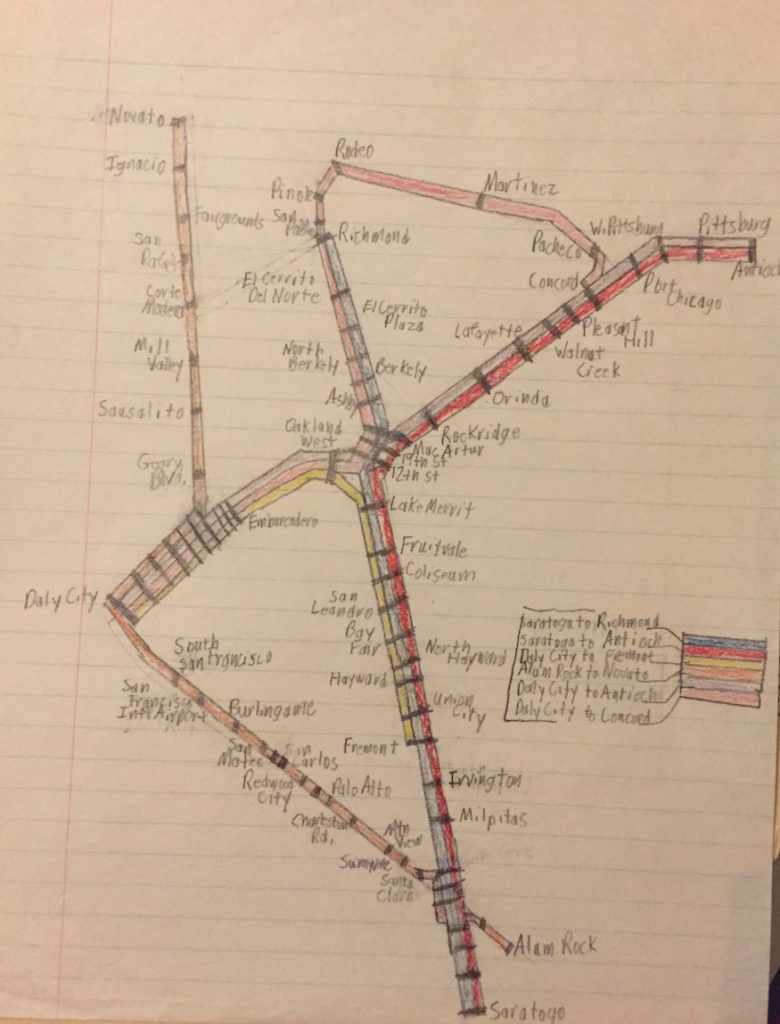 Novato
Ignacio
Fairgrounds
San
Rafael
Corte
Madera
Mill
Valley
Sausalito
Geary
Blvd.
Rodeo
Pinole
San
Pablo
Richmond
Martinez
Pacheco
Concord
W. Pittsburg
Pittsburg
Antioch
Port
Chicago
El Cerrito
Del Norte
El Cerrito
Plaza
North
Berkely
Berkely
Ashby
Lafayette
Pleasant
Hill
Walnut
Creek
Orinda
Rockridge
MacArtur
19th st
12th st
Oakland
West
Embarcadero
Daly City
Lake Merrit
Fruitvale
Coliseum
San
Leandro
Bay
Fair
North
Hayward
Hayward
Union
City
Fremont
Irvington
Milpitas
South
San Francisco
San
Francisco
Intl Airport
Burlingame
San
Mateo
San
Carlos
Redwood
City
Palo Alto
Charleston
Rd.
Mtn
View
Sunnyvale
Santa
Clara
Alam Rock
Saratoga
Saratoga to Richmond
Saratoga to Antioch
Daly City to Fremont
Alam Rock to Novato
Daly City to Antioch
Daly City to Concord